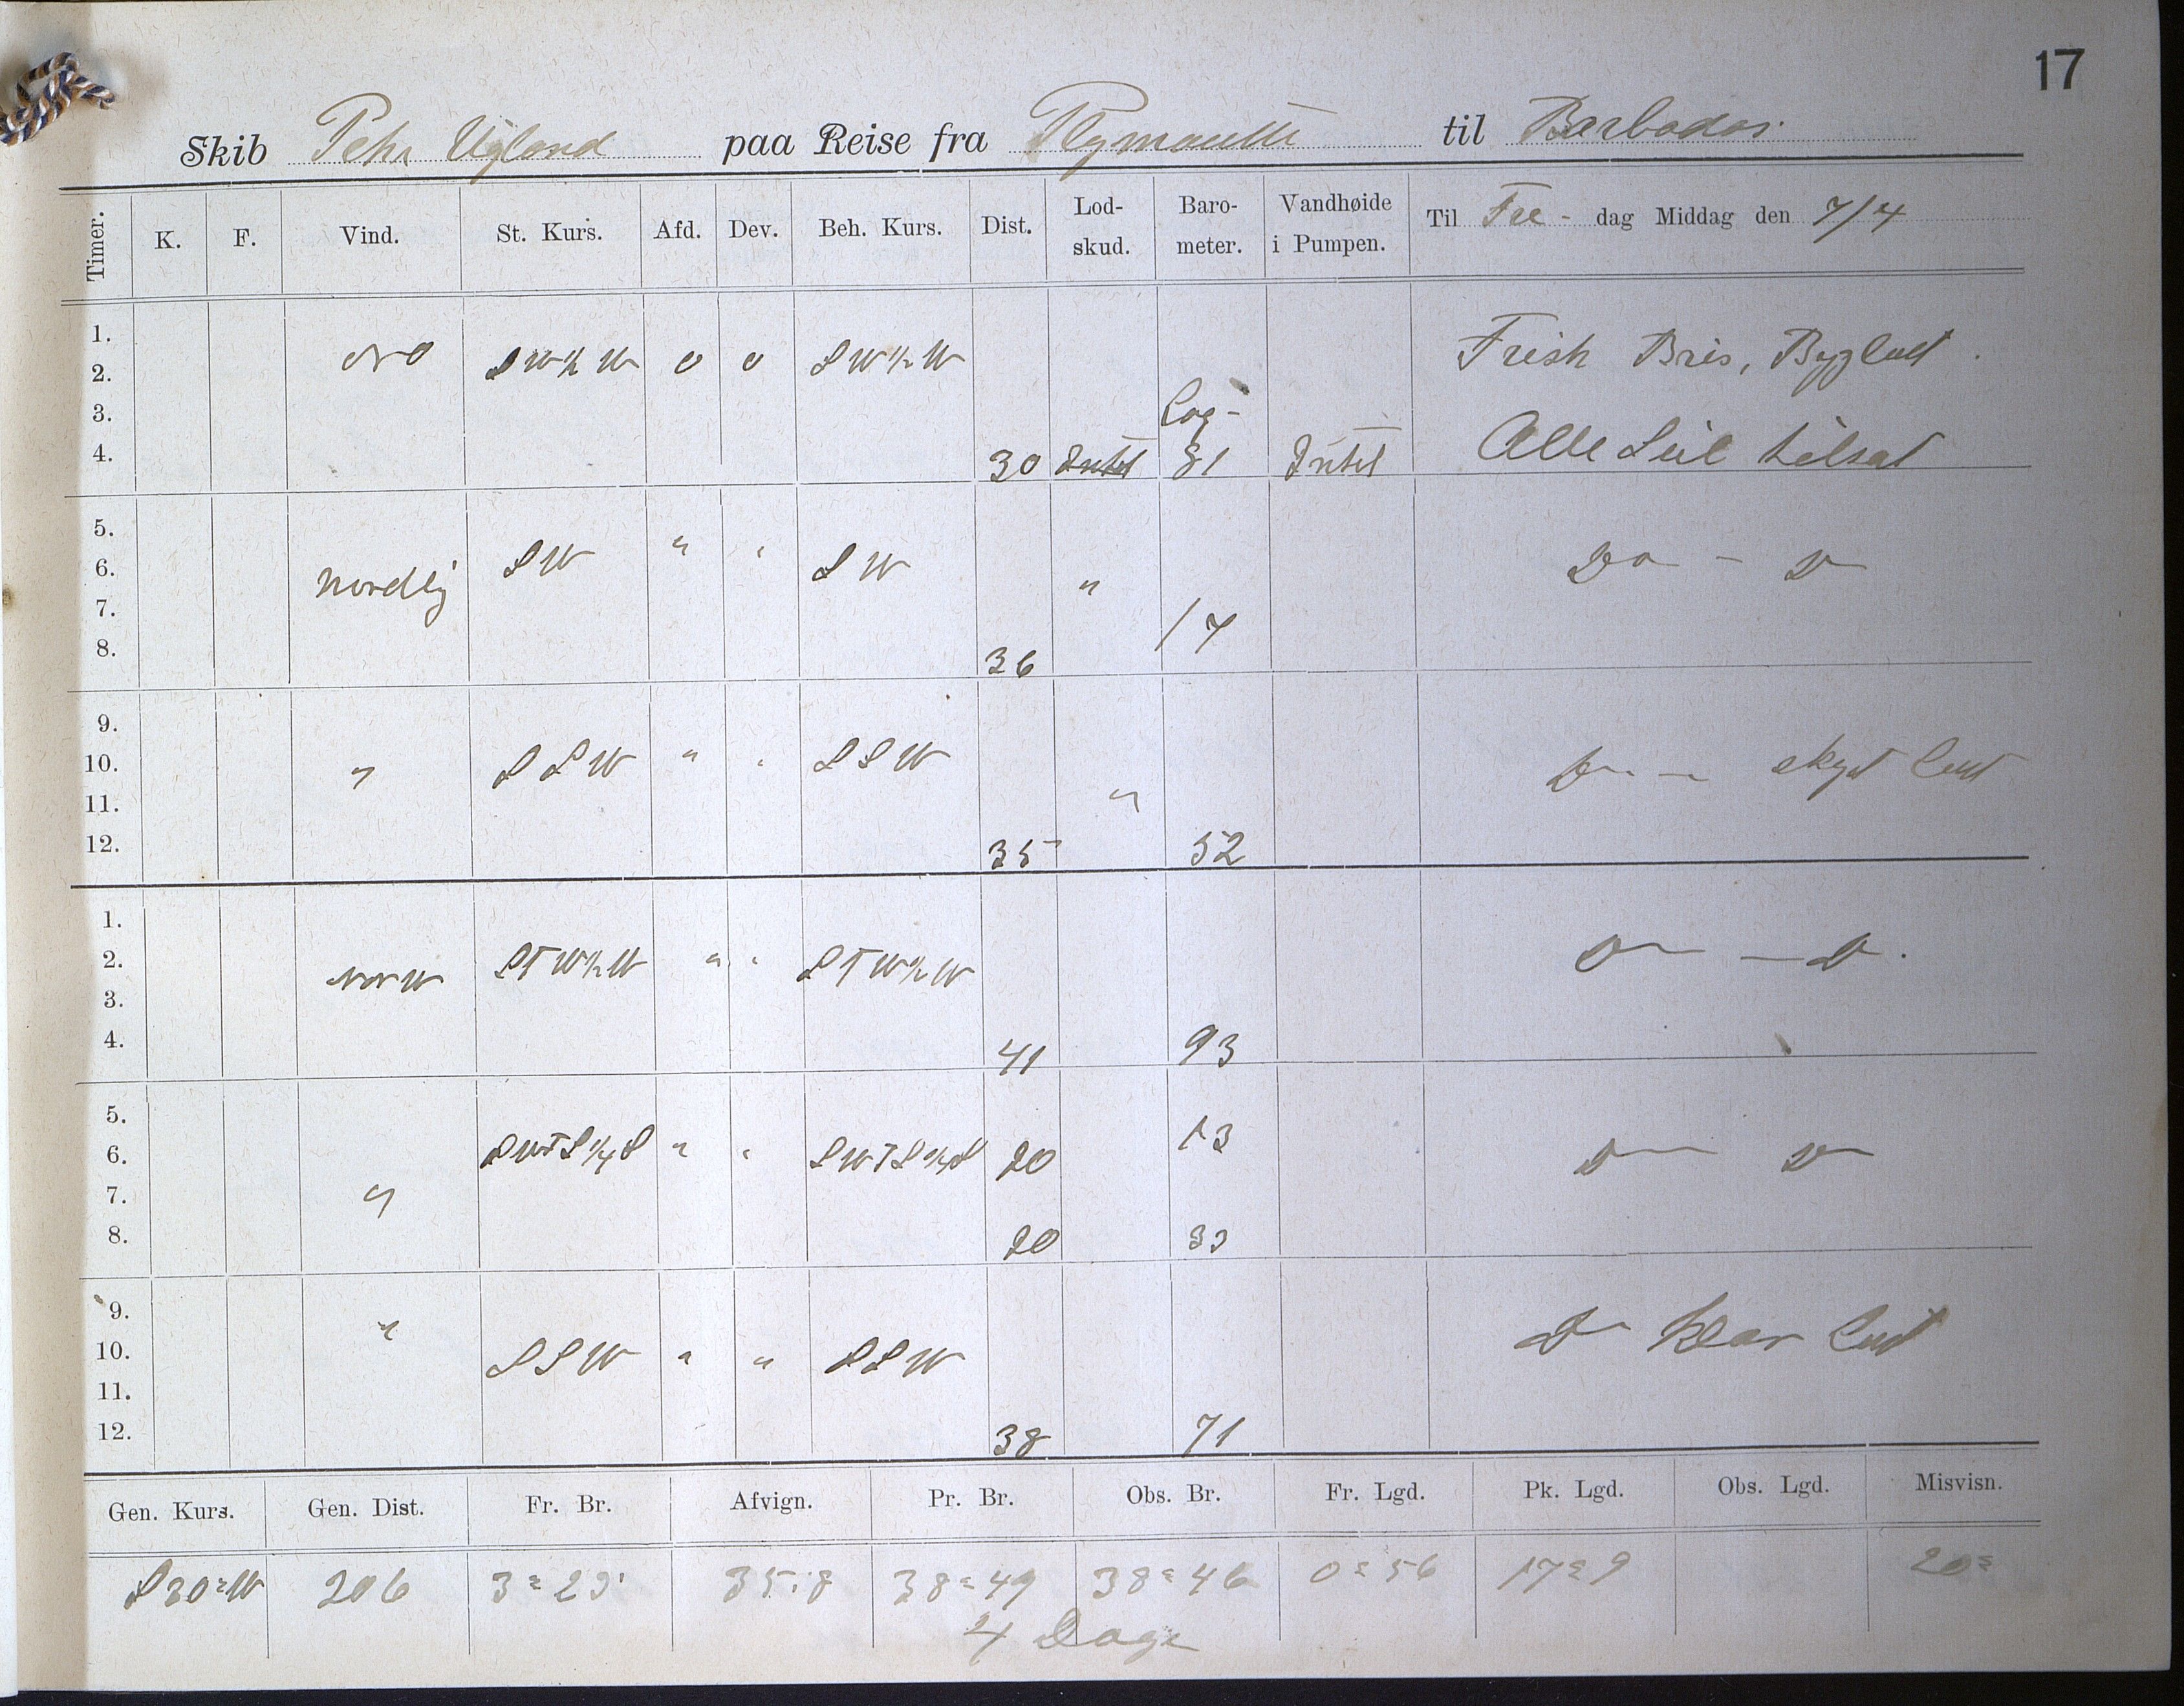 17
Skib Peter Ugland paa Reise fra Plymouth til Barbados.
Timer. K. F. Vind. St. Kurs. Afd. Dev. Beh. Kurs. Dist. Lod-skud. Baro-meter. Vandhøide i Pumpen. Til Fre - dag Middag den 7/4
1.
2. NO SW½W 0 0 SW½W Frisk Bris, Bygluft.
3. Log-
4. 30 Intet 81 Intet Alle Seil tilsat
5.
6. Nordlig SW " " SW " Do - D
7. 17
8. 36
9.
10. " SSW " " SSW D - skyet Luft
11. "
12. 35 52
1.
2. NNW STW½W " " STW½W D - D.
3.
4. 41 93
5.
6. SWTS¼S " " SWTS¼S 20 13 D D
7. "
8. 20 33
9. "
10. SSW " " SSW D Klar Luft
11.
12. 38 71
Gen. Kurs. Gen. Dist. Fr. Br. Afvign. Pr. Br. Obs. Br. Fr. Lgd. Pk. Lgd. Obs. Lgd. Misvisn.
S30°W 206 3°23' 35.8 38°49 38°46 0°56 17°9 20°
4 Dage